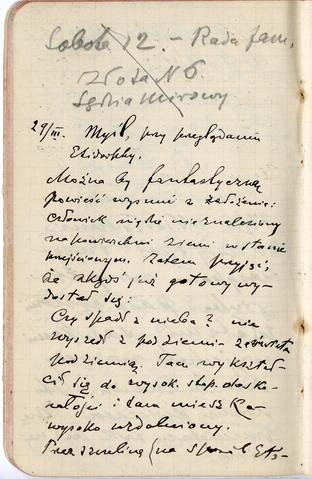 Sobota 12. – Rada fam.
Złota N 6.
Sędzia Mirowy
29/III. Myśl, przy przeglądaniu
Etidorhpy.
Można by fantastyczną
powieść wysnuć z założenia:
człowiek nigdzie nie znaleziony
na powierzchni ziemi w stanie
przejściowym. Zatem przyjąć,
że skądś już gotowy wy-
dostał się:
Czy spadł z nieba? nie
wyszedł z podziemi.
podziemia. Tam wykształ-
cił się do wysok. stop. dosko-
nałości i tam mieszka
wysoko uzdolniony.
Przez szczelinę (na sposób Eti-